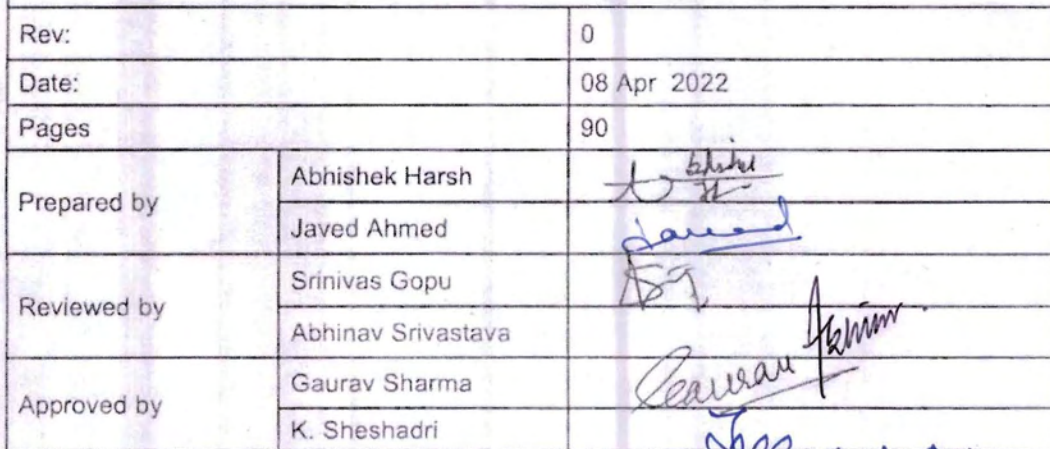 Rev: 0
Date: 08 Apr 2022
Pages 90
Prepared by
Abhishek Harsh
Javed Ahmed
Reviewed by
Srinivas Gopu
Abhinav Srivastava
Approved by
Gaurav Sharma Gaurav
K. Sheshadri